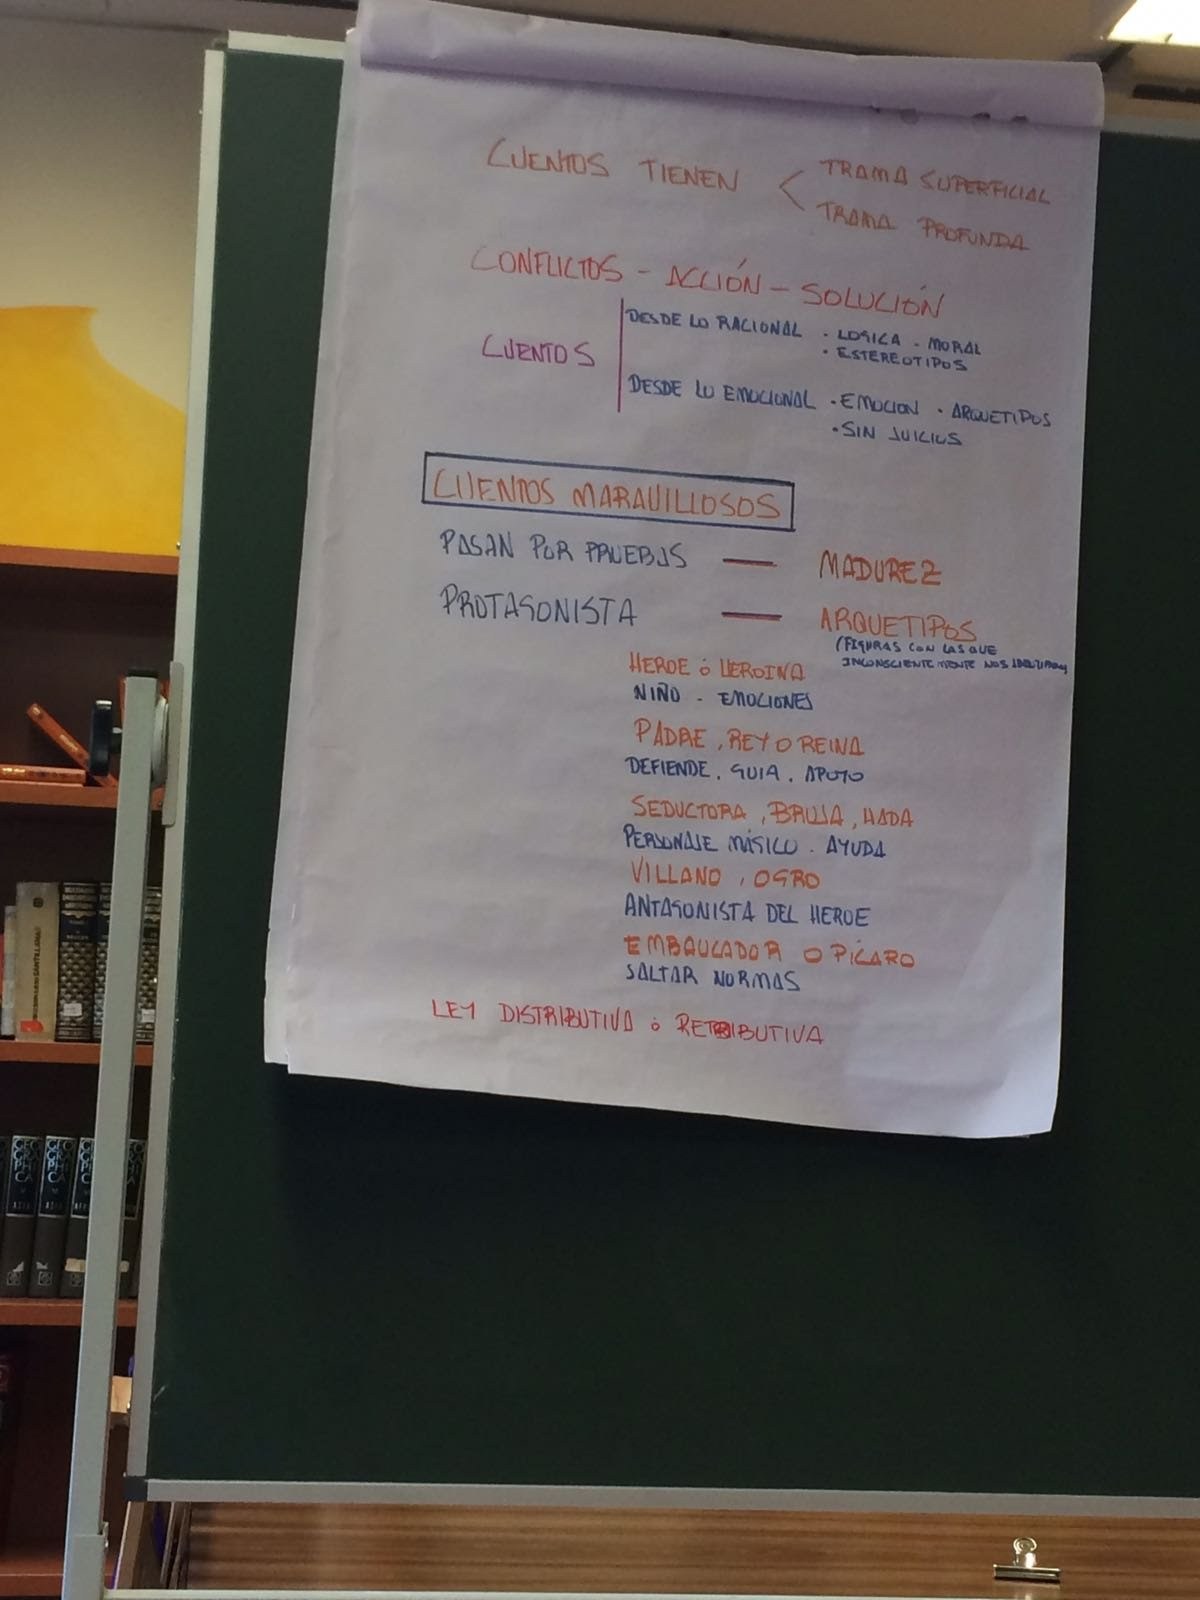 CUENTOS TIENEN < TRAMA SUPERFICIAL
TRAMA PROFUNDA
CONFLICTOS - ACCIÓN - SOLUCIÓN
CUENTOS
DESDE LO RACIONAL . LOGICA . MORAL
. ESTEREOTIPOS
DESDE LO EMOCIONAL . EMOCION . ARQUETIPOS
. SIN JUICIOS
CUENTOS MARAVILLOSOS
PASAN POR PRUEBAS — MADUREZ
PROTAGONISTA — ARQUETIPOS
(FIGURAS CON LAS QUE
INCONSCIENTEMENTE NOS
HEROE ó HEROINA
NIÑO - EMOCIONES
PADRE, REY O REINA
DEFIENDE. GUIA. APOYO
SEDUCTORA, BRUJA, HADA
PERSONAJE MÁGICO. AYUDA
VILLANO, OGRO
ANTAGONISTA DEL HEROE
EMBAUCADOR O PÍCARO
SALTAR NORMAS
LEY DISTRIBUTIVA ó RETRIBUTIVA